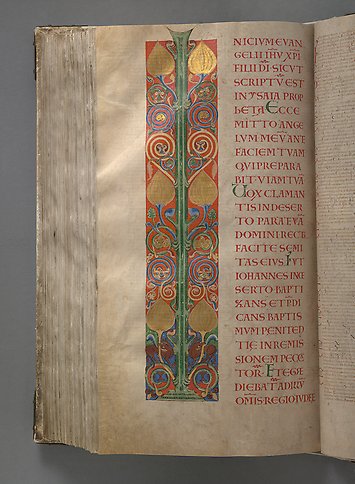 INICIUM EVAN
GELII IHV XPI
FILII DI SICVT
SCRIPTV EST
IN YSAIA PROP
HETA ECCE
MITTO ANGE
LVM MEV ANT
FACIEM TVAM
QVI PREPARA
BIT VIAM TVA
VOX CLAMAN
TIS IN DESER
TO PARATE VIA
DOMINI RECT
FACITE SEMI
TAS EIVS FVIT
IOHANNES IN DE
SERTO BAPTI
ZANS ET PDI
CANS BAPTIS
MVM PENITEN
TIE IN REMIS
SIONEM PECCA
TOR ET EGRE
DIEBAT AD
OMIS REGIO IVDEE